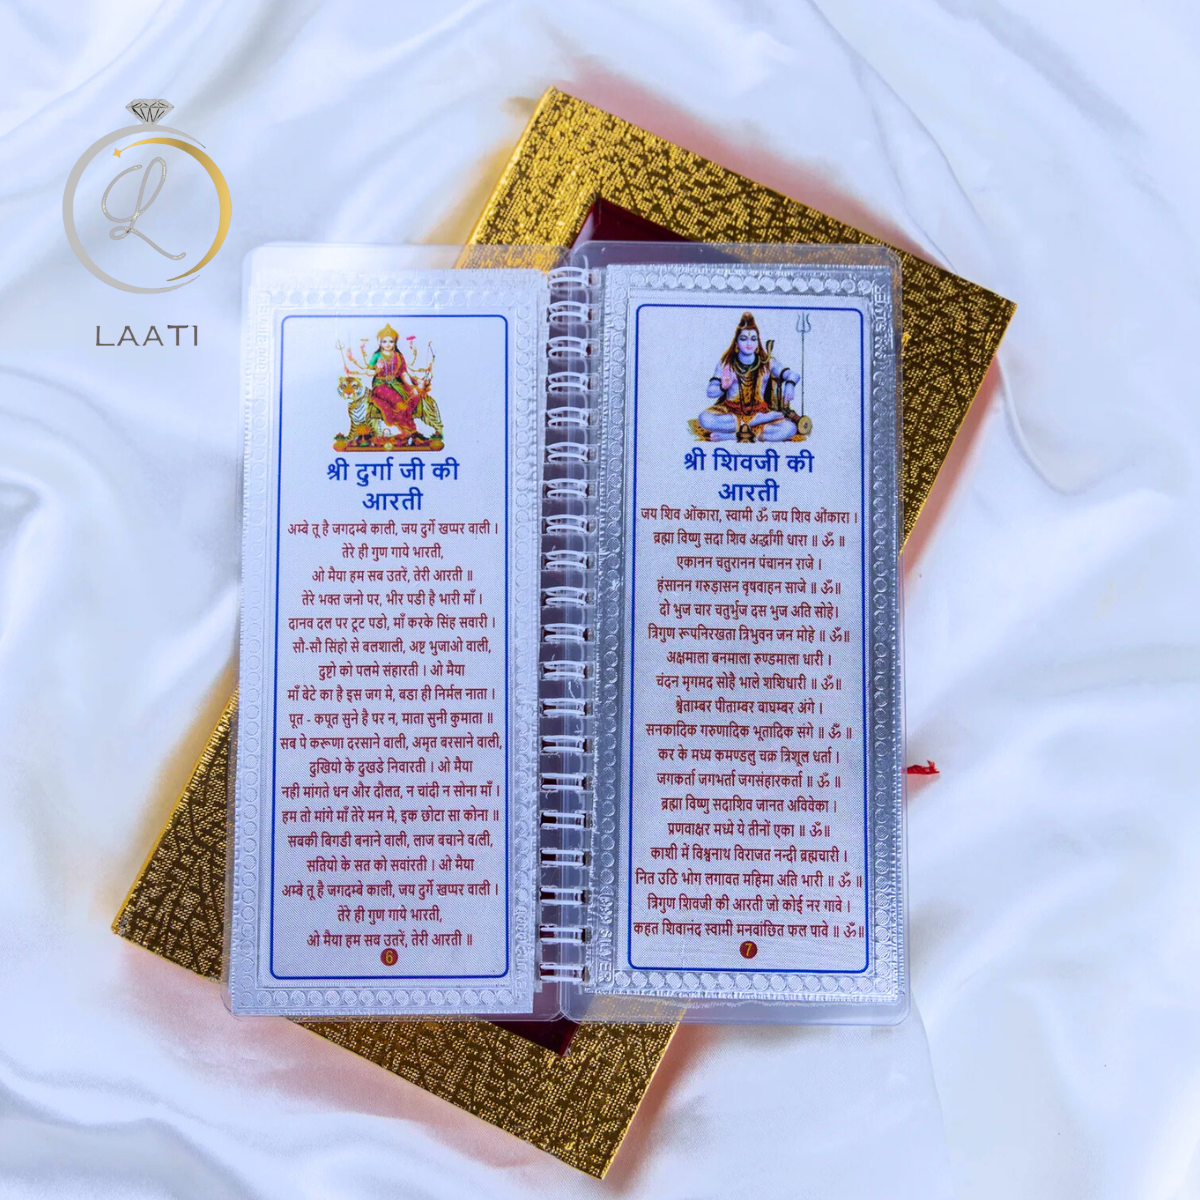 LAATI
श्री दुर्गा जी की
आरती
अम्बे तू है जगदम्बे काली, जय दुर्गे खप्पर वाली ।
तेरे ही गुण गाये भारती,
ओ मैया हम सब उतरें, तेरी आरती ॥
तेरे भक्त जनो पर, भीर पडी है भारी माँ ।
दानव दल पर टूट पडो, माँ करके सिंह सवारी ।
सौ-सौ सिंहो से बलशाली, अष्ट भुजाओ वाली,
दुष्टो को पलमे संहारती । ओ मैया
माँ बेटे का है इस जग मे, बडा ही निर्मल नाता ।
पूत - कपूत सुने है पर न, माता सुनी कुमाता ॥
सब पे करूणा दरसाने वाली, अमृत बरसाने वाली,
दुखियो के दुखडे निवारती । ओ मैया
नही मांगते धन और दौलत, न चांदी न सोना माँ ।
हम तो मांगे माँ तेरे मन मे, इक छोटा सा कोना ॥
सबकी बिगडी बनाने वाली, लाज बचाने वाली,
सतियो के सत को सवांरती । ओ मैया
अम्बे तू है जगदम्बे काली, जय दुर्गे खप्पर वाली ।
तेरे ही गुण गाये भारती,
ओ मैया हम सब उतरें, तेरी आरती ॥
6
श्री शिवजी की
आरती
जय शिव ओंकारा, स्वामी ॐ जय शिव ओंकारा ।
ब्रह्मा विष्णु सदा शिव अर्द्धांगी धारा ॥ ॐ ॥
एकानन चतुरानन पंचानन राजे ।
हंसानन गरुड़ासन वृषवाहन साजे ॥ ॐ॥
दो भुज चार चतुर्भुज दस भुज अति सोहे।
त्रिगुण रूपनिरखता त्रिभुवन जन मोहे ॥ ॐ॥
अक्षमाला बनमाला रुण्डमाला धारी ।
चंदन मृगमद सोहै भाले शशिधारी ॥ ॐ॥
श्वेताम्बर पीताम्बर बाघम्बर अंगे ।
सनकादिक गरुणादिक भूतादिक संगे ॥ ॐ ॥
कर के मध्य कमण्डलु चक्र त्रिशूल धर्ता ।
जगकर्ता जगभर्ता जगसंहारकर्ता ॥ ॐ ॥
ब्रह्मा विष्णु सदाशिव जानत अविवेका ।
प्रणवाक्षर मध्ये ये तीनों एका ॥ ॐ॥
काशी में विश्वनाथ विराजत नन्दी ब्रह्मचारी ।
नित उठि भोग लगावत महिमा अति भारी ॥ ॐ ॥
त्रिगुण शिवजी की आरती जो कोई नर गावे ।
कहत शिवानंद स्वामी मनवांछित फल पावे ॥ ॐ॥
7